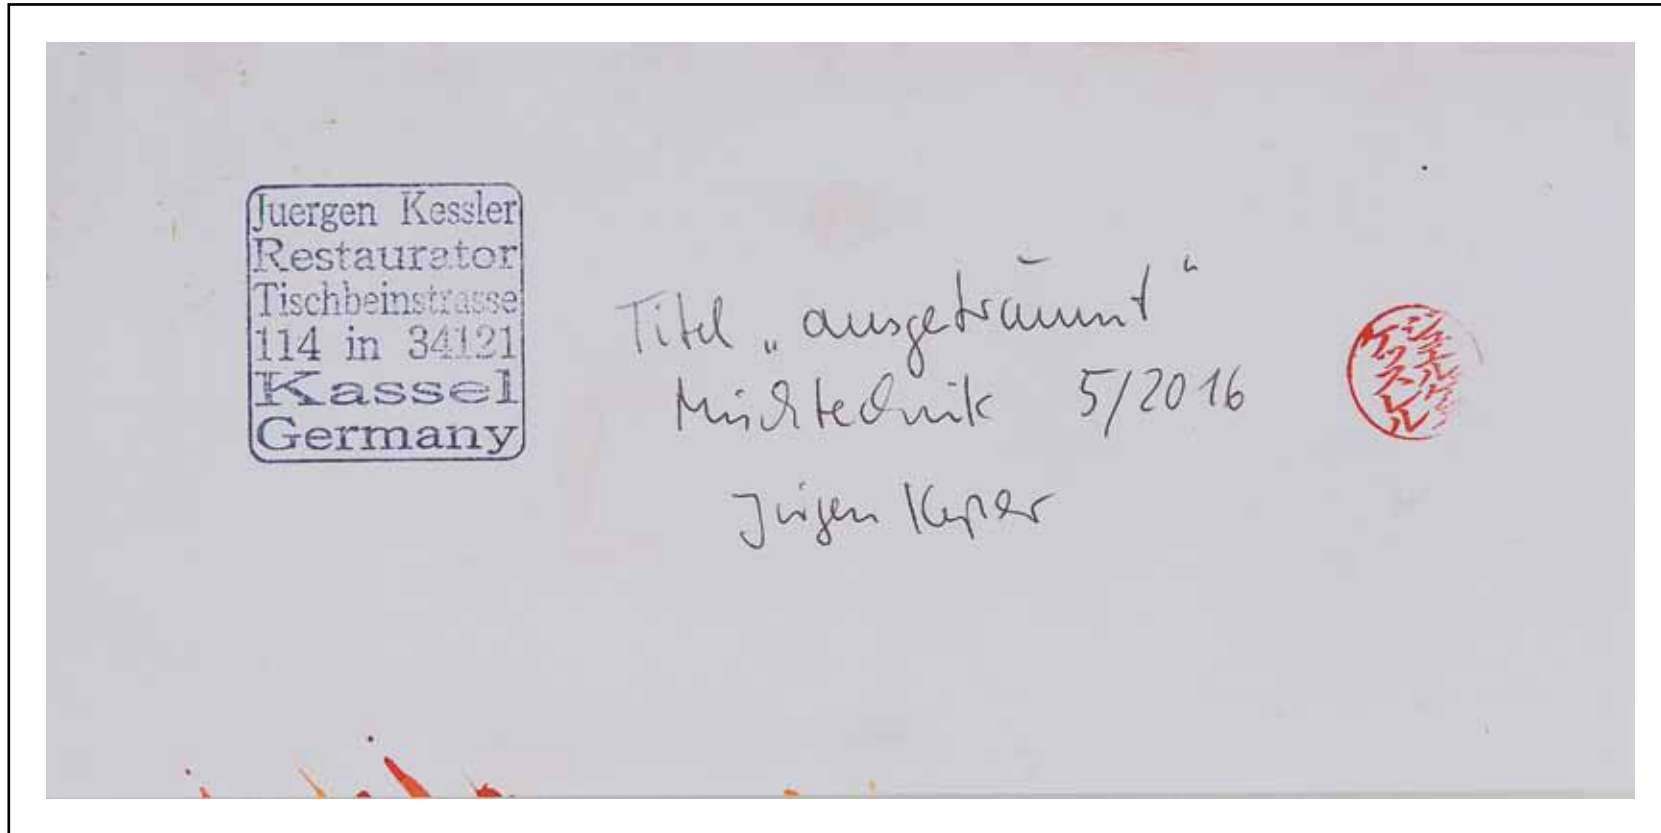 Juergen Kessler
Restaurator
Tischbeinstrasse
114 in 34121
Kassel
Germany
Titel „ausgeträumt“
Mischtechnik 5/2016
Jürgen Kessler
ジュエルゲン
ケッスレル